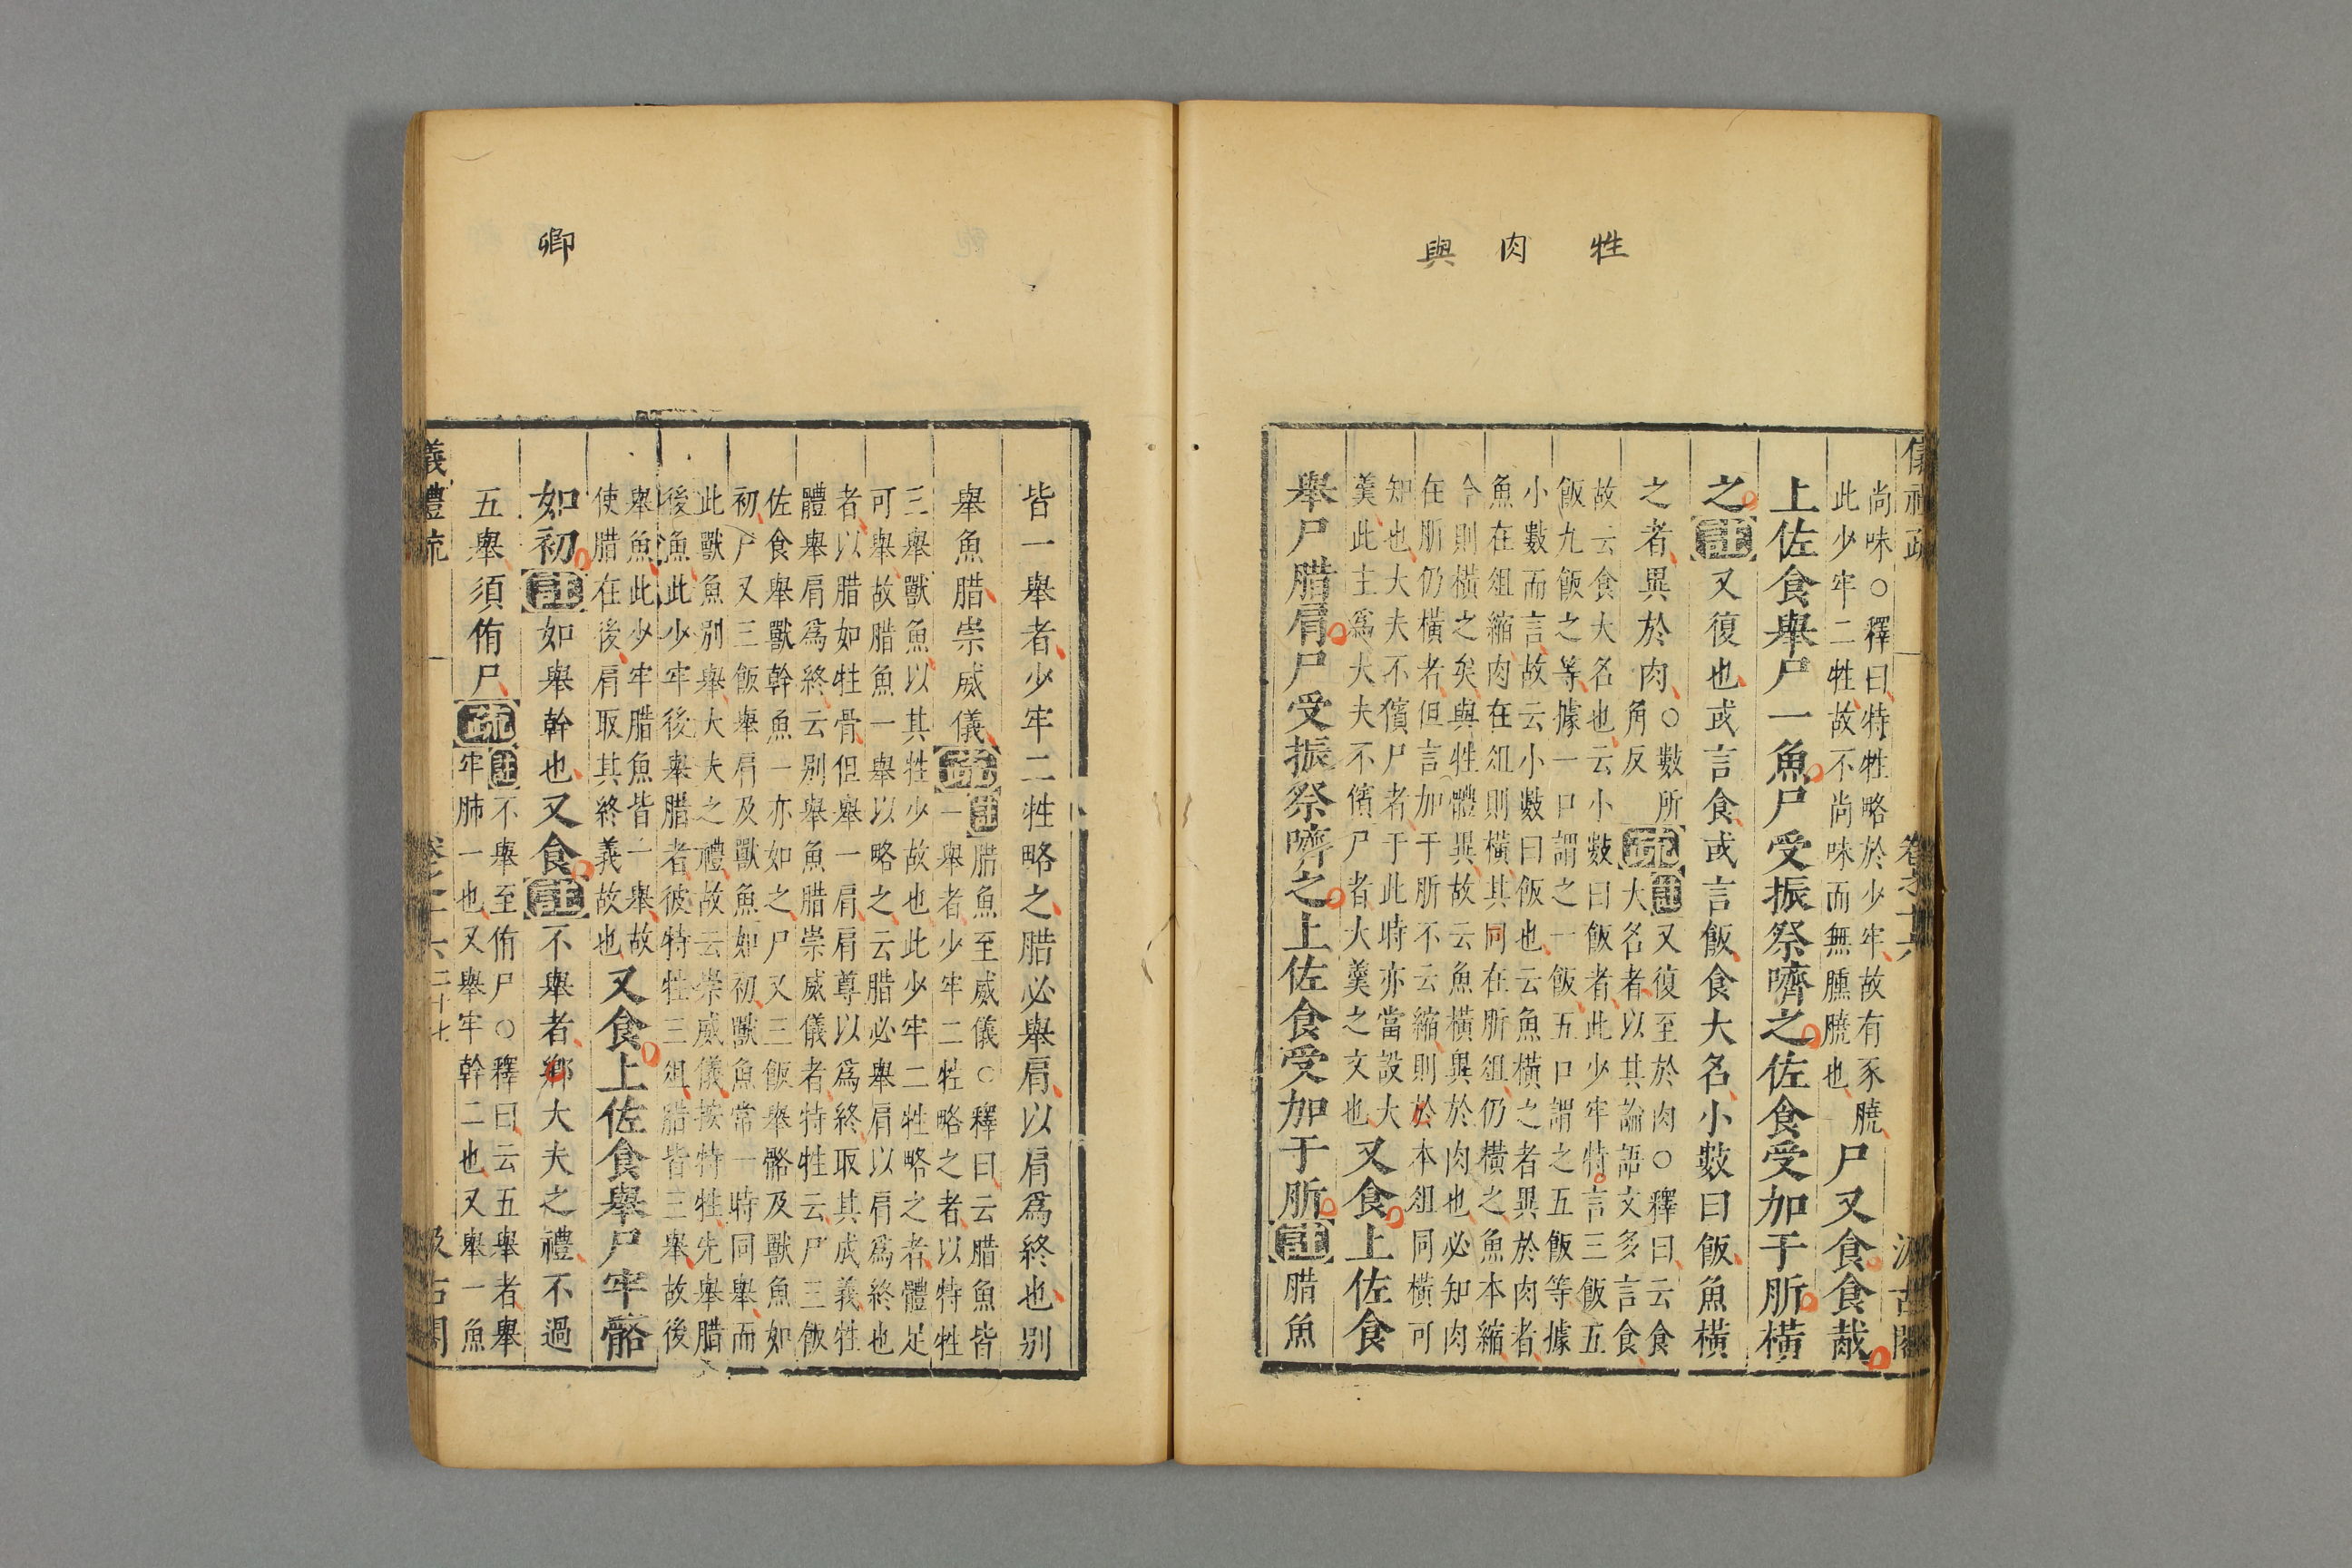 牲
肉
與
尚味○釋曰特牲略於少牢故有豕膮
此少牢二牲故不尚味而無臐膮也
尸又食食胾
上佐食舉尸一魚尸受振祭嚌之佐食受加于肵橫
之註又復也或言食或言飯食大名小數曰飯魚橫
之者異於肉○數所
角反
疏註又復至於肉○釋曰云食
大名者以其論語文多言食
故云食大名也云小數曰飯者此少牢特言三飯五
飯九飯之等據一口謂之一飯五口謂之五飯等據
小數而言故云小數曰飯也云魚橫之者異於肉者
魚在俎縮肉在俎則橫其同在肵俎仍橫之魚本縮
今則橫之矣與牲體異故云魚橫與於肉也必知肉
在肵仍橫者但言加于肵不云縮則於本俎同橫可
知也大夫不儐尸者于此時亦當設大
羹此主爲大夫不儐尸者大羹之文也
又食上佐食
舉尸腊肩尸受振祭嚌之上佐食受加于肵註腊魚
儀禮疏 卷之十六 汲古閣
卿
皆一舉者少牢二牲略之腊必舉肩以肩爲終也别
舉魚腊崇威儀疏註腊魚至威儀○釋曰云腊魚皆
一舉者少牢二牲略之者以特牲
三舉獸魚以其牲少故也此少牢二牲略之者體足
可舉故腊魚一舉以略之云腊必舉肩以肩爲終也
者以腊如牲骨但舉一肩肩尊以爲終取其成義牲
體舉肩爲終云别舉魚腊崇威儀者特牲云尸三飯
佐食舉獸幹魚一亦如之尸又三飯舉骼及獸魚如
初尸又三飯舉肩及獸魚如初獸魚常一時同舉而
此獸魚别舉大夫之禮故云崇威儀按特牲先舉腊
後魚此少牢後舉腊者彼特牲三俎腊皆三舉故後
舉魚此少牢腊魚皆一舉故
使腊在後肩取其終義故也
又食上佐食舉尸牢骼
如初註如舉幹也又食註不舉者鄉大夫之禮不過
五舉須侑尸疏註不舉至侑尸○釋曰云五舉者舉
牢肺一也又舉牢幹二也又舉一魚
儀禮疏 卷之十六 二十七 汲古閣